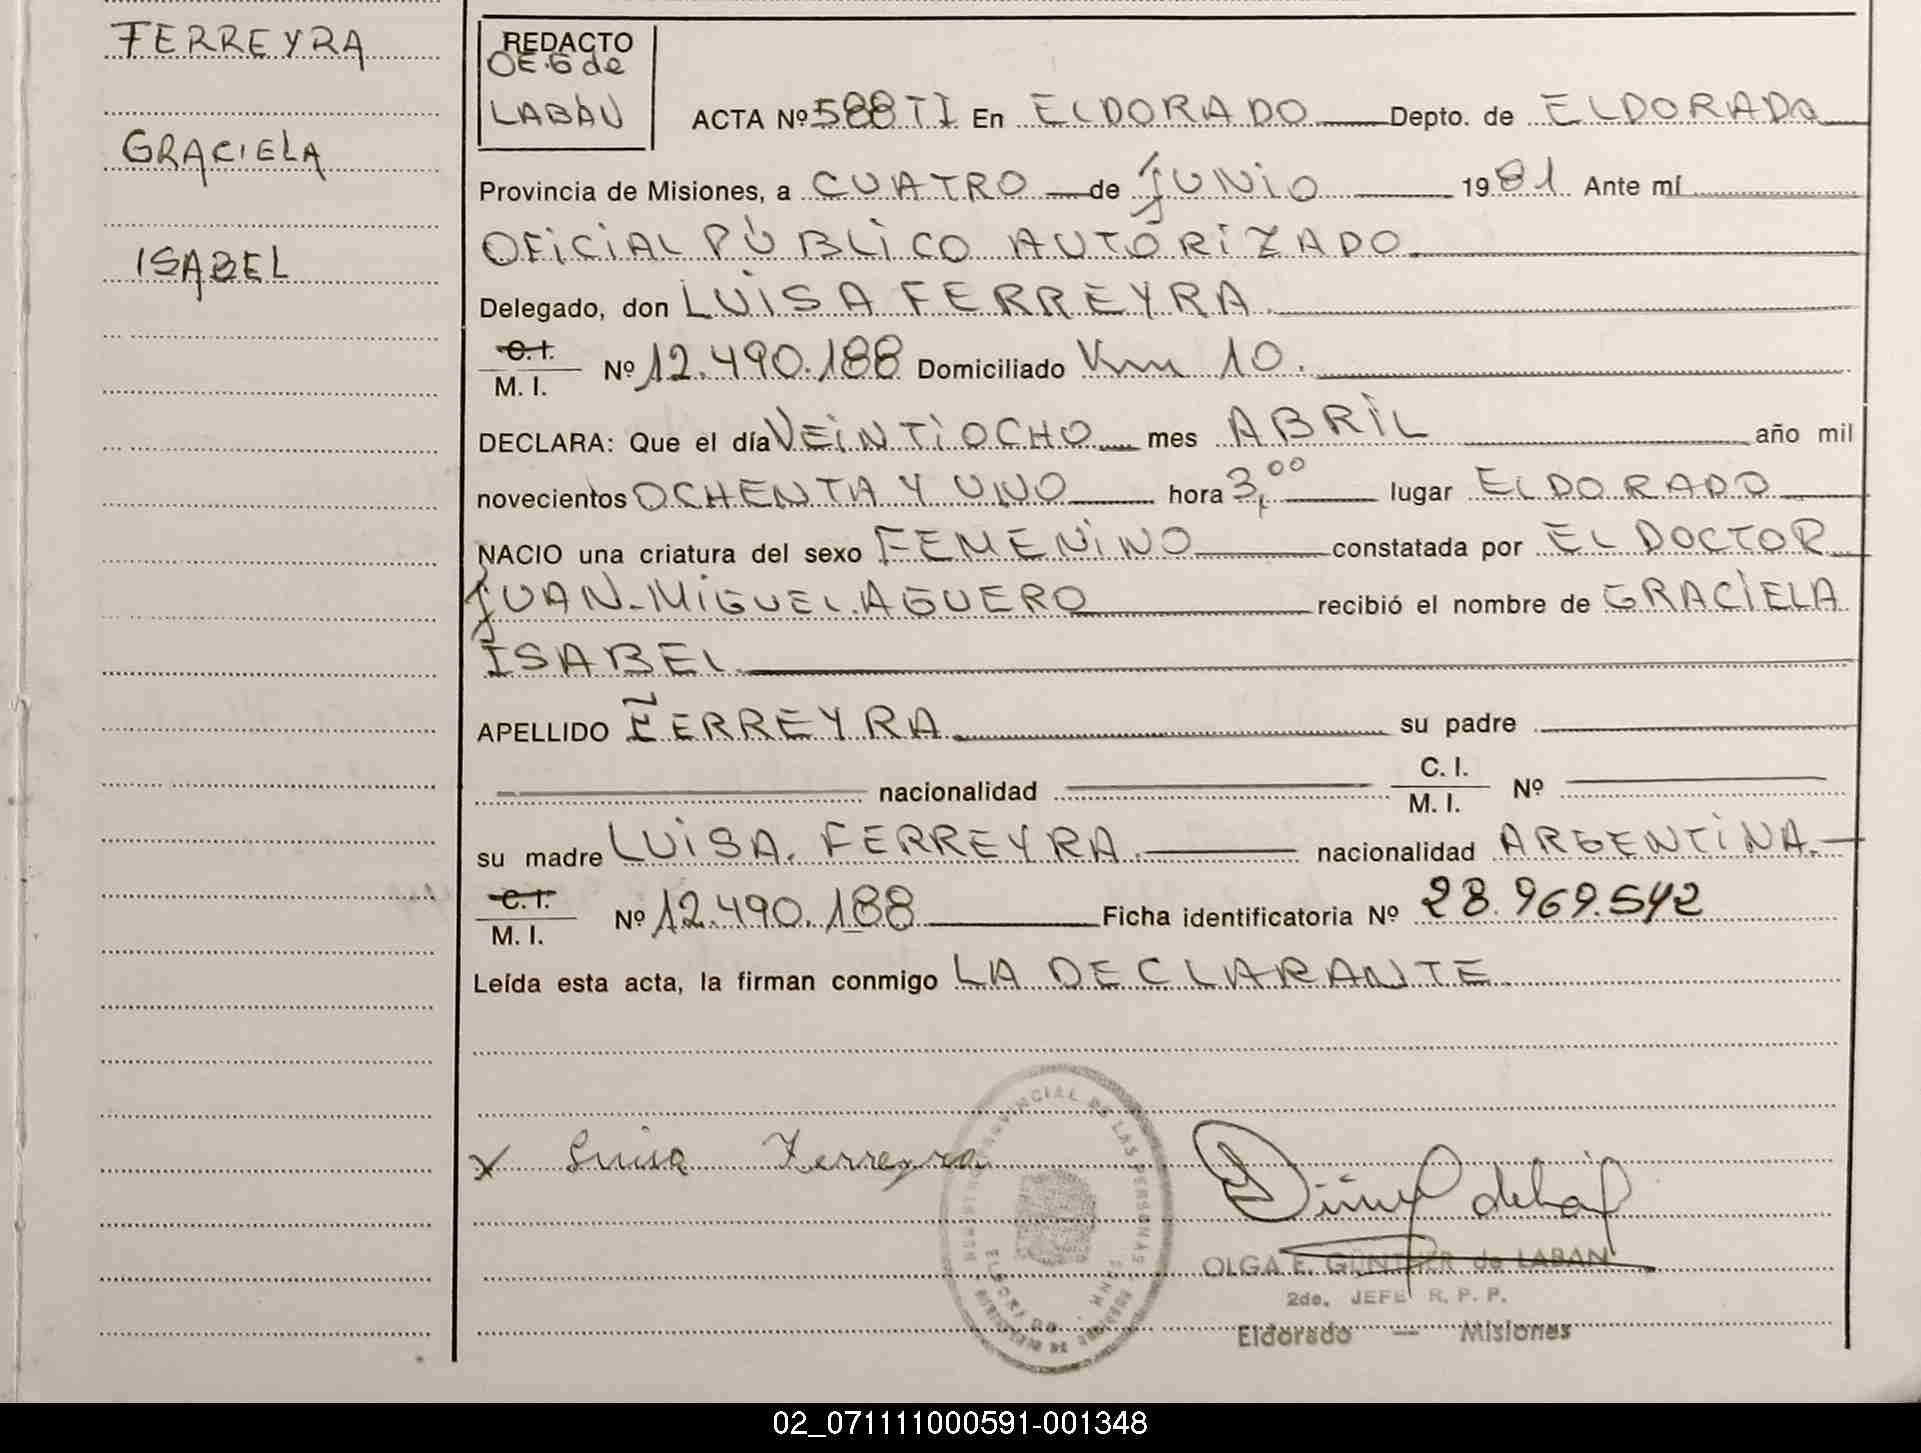 FERREYRA
GRACIELA
ISABEL
REDACTO
OE.G de
LABAN
ACTA Nº 588 TI En ELDORADO Depto. de ELDORADO
Provincia de Misiones, a CUATRO de JUNIO 1981 Ante mí
OFICIAL PÚBLICO AUTORIZADO
Delegado, don LUISA FERREYRA
C. I.
M. I. Nº 12.490.188 Domiciliado Km 10.
DECLARA: Que el día VEINTIOCHO mes ABRIL año mil
novecientos OCHENTA Y UNO hora 3,00 lugar ELDORADO
NACIO una criatura del sexo FEMENINO constatada por EL DOCTOR
JUAN-MIGUEL.AGUERO recibió el nombre de GRACIELA
ISABEL.
APELLIDO FERREYRA su padre
nacionalidad C. I.
M. I. Nº
su madre LUISA. FERREYRA. nacionalidad ARGENTINA.
C. I.
M. I. Nº 12.490.188 Ficha identificatoria Nº 28.969.542
Leída esta acta, la firman conmigo LA DECLARANTE.
x Luisa Ferreyra
PROVINCIAL DE LAS PERSONAS
ELDORADO
OLGA E. GÜNTHER de LABAN
2do. JEFE R. P. P.
Eldorado — Misiones
02_071111000591-001348